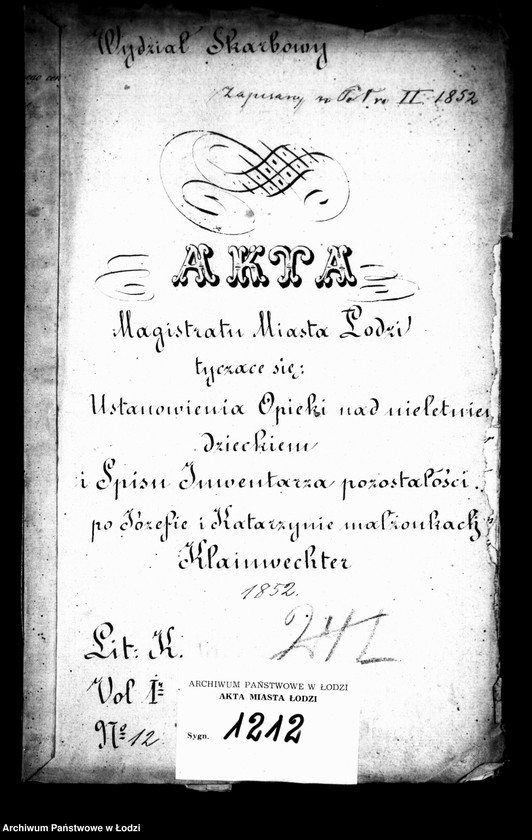 Wydział Skarbowy
Zapisany w Rep. II 1852
AKTA
Magistratu Miasta Łodzi
tyczące się:
Ustanowienia Opieki nad nieletniem
dzieckiem
i Spisu Inwentarza pozostałości
po Józefie i Katarzynie małżonkach
Klainwechter
1852.
241
Lit: K.
Vol I
No 12
ARCHIWUM PAŃSTWOWE W ŁODZI
AKTA MIASTA ŁODZI
Sygn. 1212
Archiwum Państwowe w Łodzi